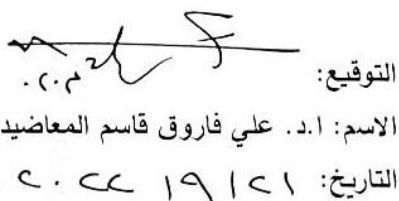 التوقيع:
الاسم: ا.د. علي فاروق قاسم المعاضيد
التاريخ: ٢٠٢٢ /٩ /٢١